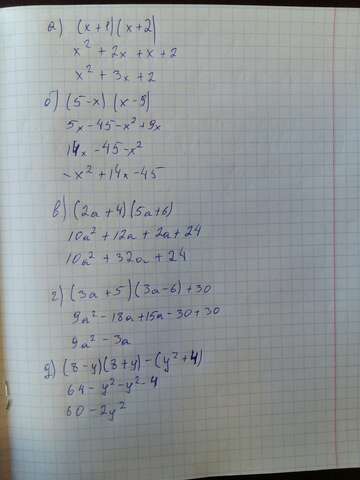 а) (x+1)(x+2)
x² + 2x + x + 2
x² + 3x + 2
б) (5-x)(x-9)
5x - 45 - x² + 9x
14x - 45 - x²
-x² + 14x - 45
в) (2a+4)(5a+6)
10a² + 12a + 2a + 24
10a² + 32a + 24
г) (3a+5)(3a-6)+30
9a² - 18a + 15a - 30 + 30
9a² - 3a
д) (8-y)(8+y)-(y²+4)
64 - y² - y² - 4
60 - 2y²